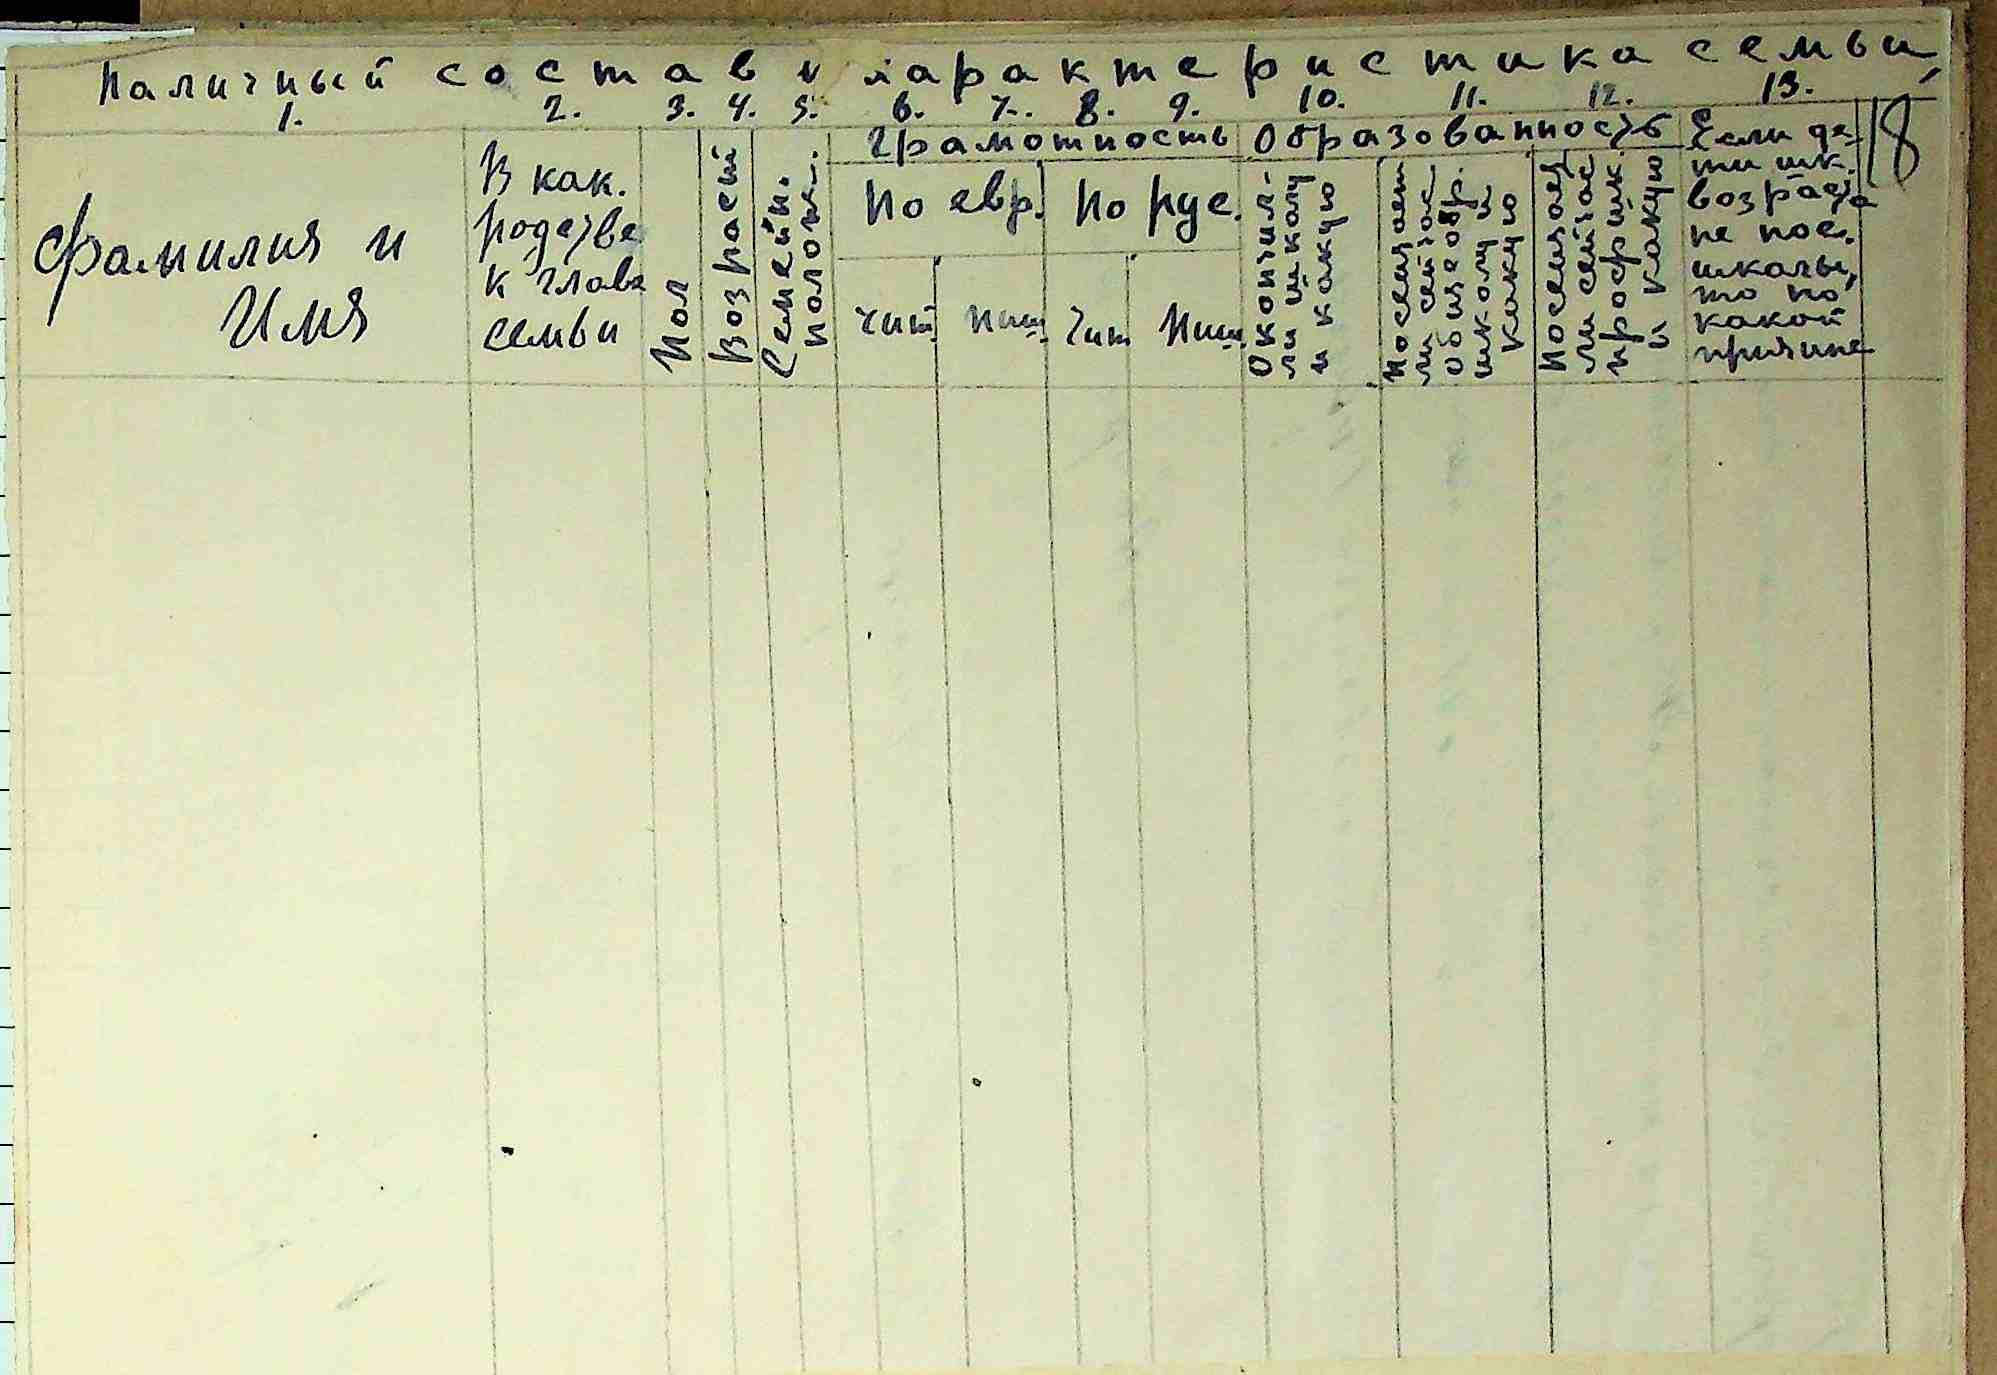 Наличный состав и характеристика семьи
1. 2. 3. 4. 5. 6. 7. 8. 9. 10. 11. 12. 13.
18
Фамилия и
Имя
В как.
родстве
к главе
семьи
Пол
Возраст
Семейн.
полож.
Грамотность
По евр.
По рус.
Чит.
Пиш.
Чит
Пиш.
Образованность
Окончил
ли школу
и какую
Посещает
ли сейчас
общеобр.
школу и
какую
Посещает
ли сейчас
профшк
и какую
Если де-
ти шк.
возраста
не пос.
школы,
то по
какой
причине